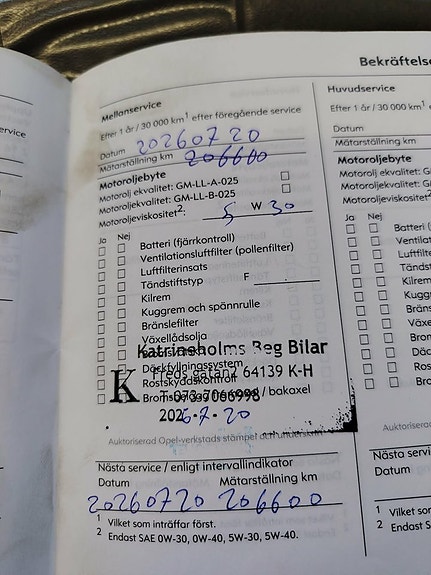 Bekräftelse
Mellanservice
Efter 1 år / 30 000 km¹ efter föregående service
Datum 20260720
Mätarställning km 206600
Motoroljebyte
Motorolj ekvalitet: GM-LL-A-025
Motorolj ekvalitet: GM-LL-B-025
Motoroljeviskositet²: 5 W 30
Ja Nej
Batteri (fjärrkontroll)
Ventilationsluftfilter (pollenfilter)
Luftfilterinsats
Tändstiftstyp F
Kilrem
Kuggrem och spännrulle
Bränslefilter
Växellådsolja
Katrineholms Beg Bilar
Däckfyllningssystem
K Fredsgatan2 64139 K-H
Rostskyddskontroll
T 073-7066998
/ bakaxel
2026-7-20
Auktoriserad Opel-verkstads stämpel och underskrift
Nästa service / enligt intervallindikator
Datum Mätarställning km
20260720 206600
¹ Vilket som inträffar först.
² Endast SAE 0W-30, 0W-40, 5W-30, 5W-40.
Huvudservice
Efter 1 år / 30 000 km¹
Datum
Mätarställning km
Motoroljebyte
Motorolj ekvalitet: GM
Motorolj ekvalitet: G
Motoroljeviskositet²
Ja Nej
Batteri (
Ventilat
Luftfilte
Tändst
Kilrem
Kuggr
Bräns
Växel
Bron
Däck
Rost
Bro
Auktoriserad Op
Nästa servi
Datum
¹ Vilket so
² Endast